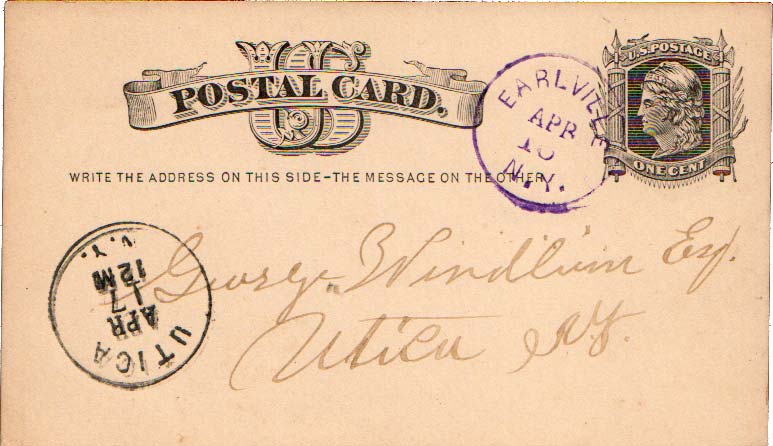 US
POSTAL CARD.
U.S. POSTAGE
ONE CENT
EARLVILLE
APR
N.Y.
WRITE THE ADDRESS ON THIS SIDE–THE MESSAGE ON THE OTHER
George Windlim Esq.
Utica N.Y.
UTICA
APR
17
12 M
N.Y.